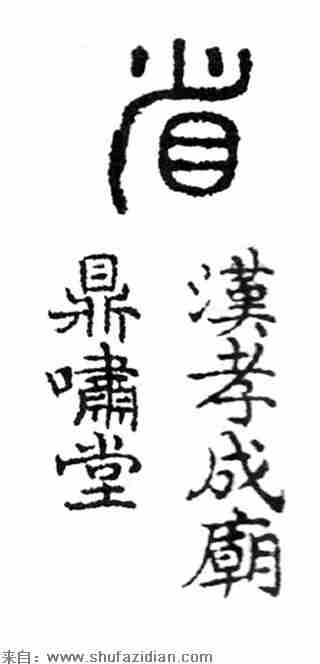 省
漢孝成廟
鼎嘯堂
来自：www.shufazidian.com